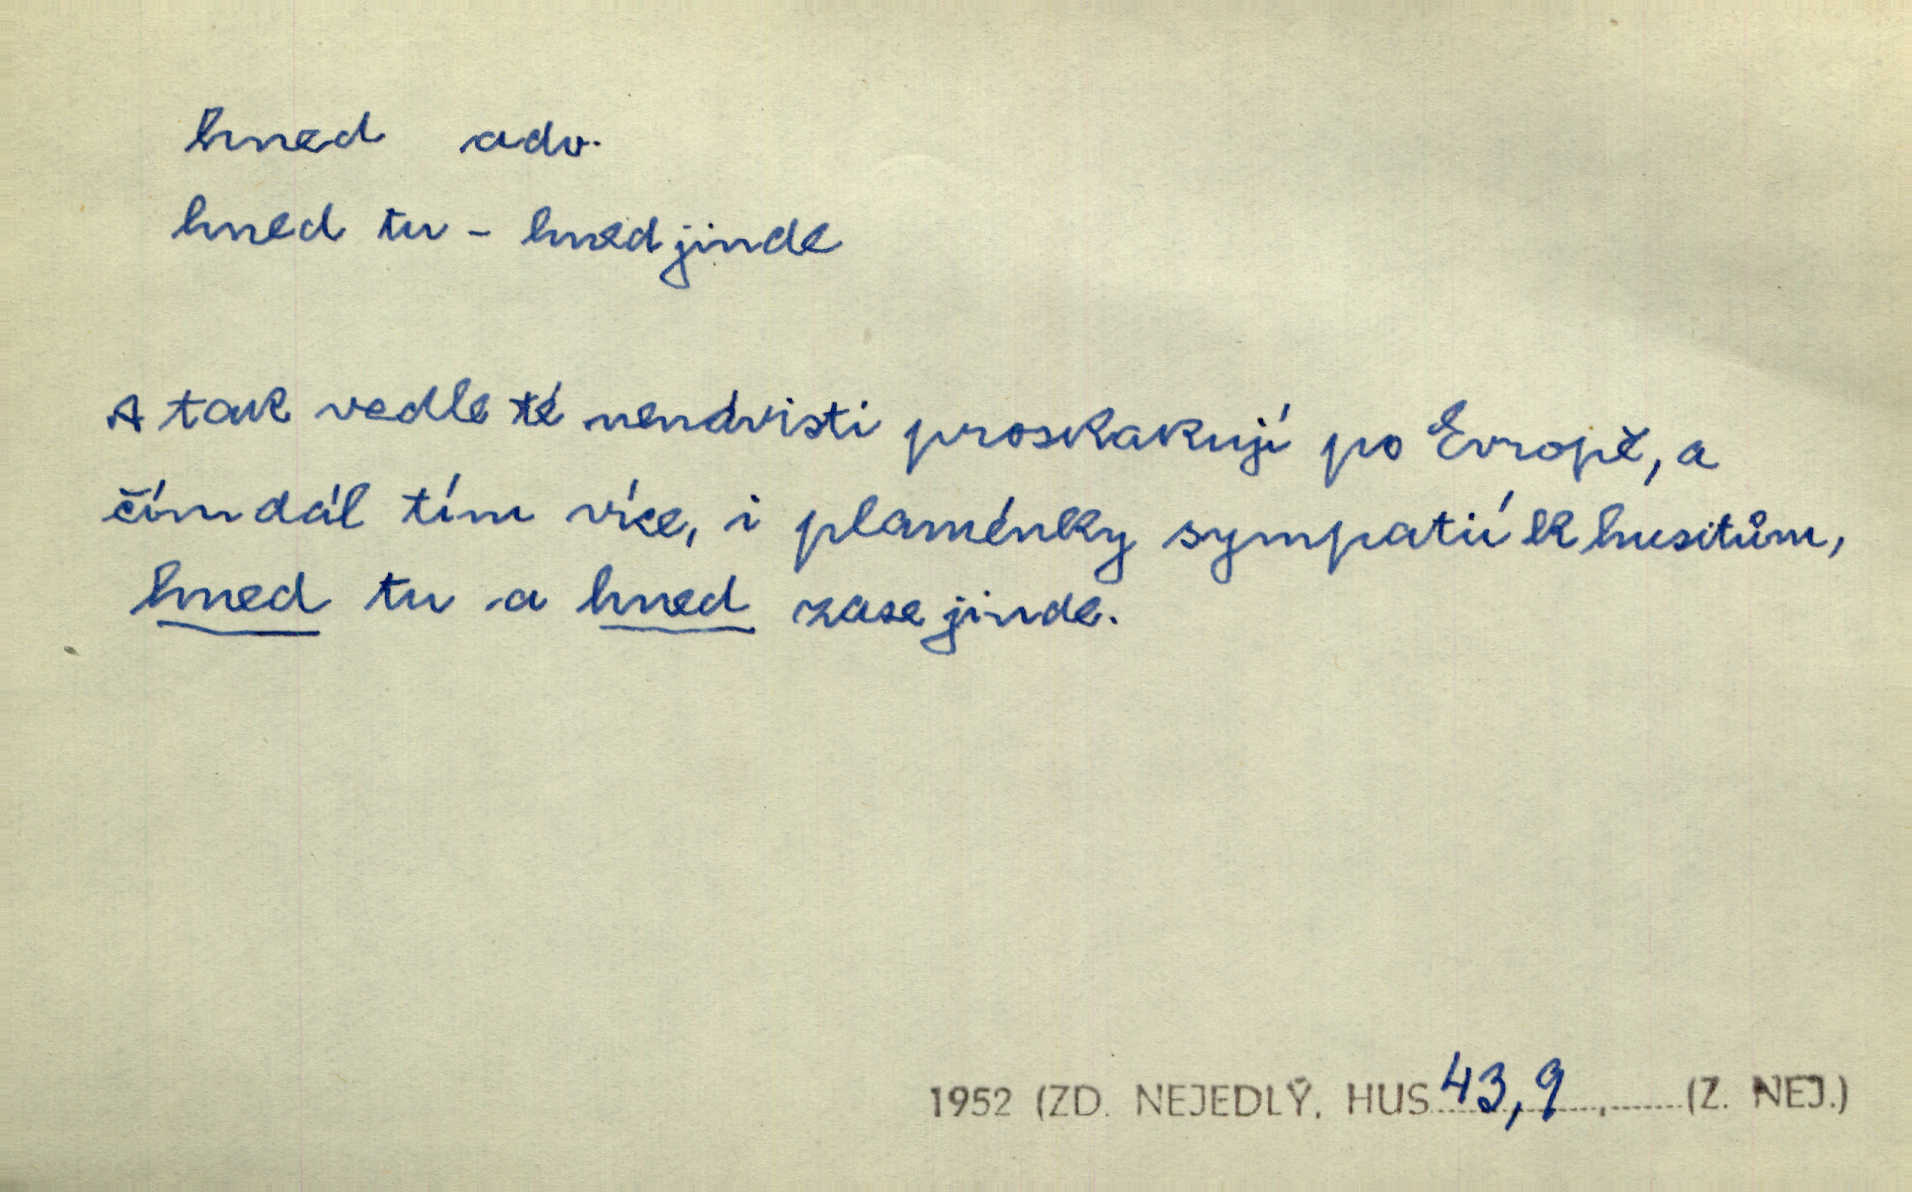 hned adv.
hned tu - hned jinde
A tak vedle té nenávisti proskakují po Evropě, a
čím dál tím více, i plaménky sympatií k husitům,
hned tu a hned zase jinde.
1952 (ZD. NEJEDLÝ, HUS 43,9 , (Z. NEJ.)